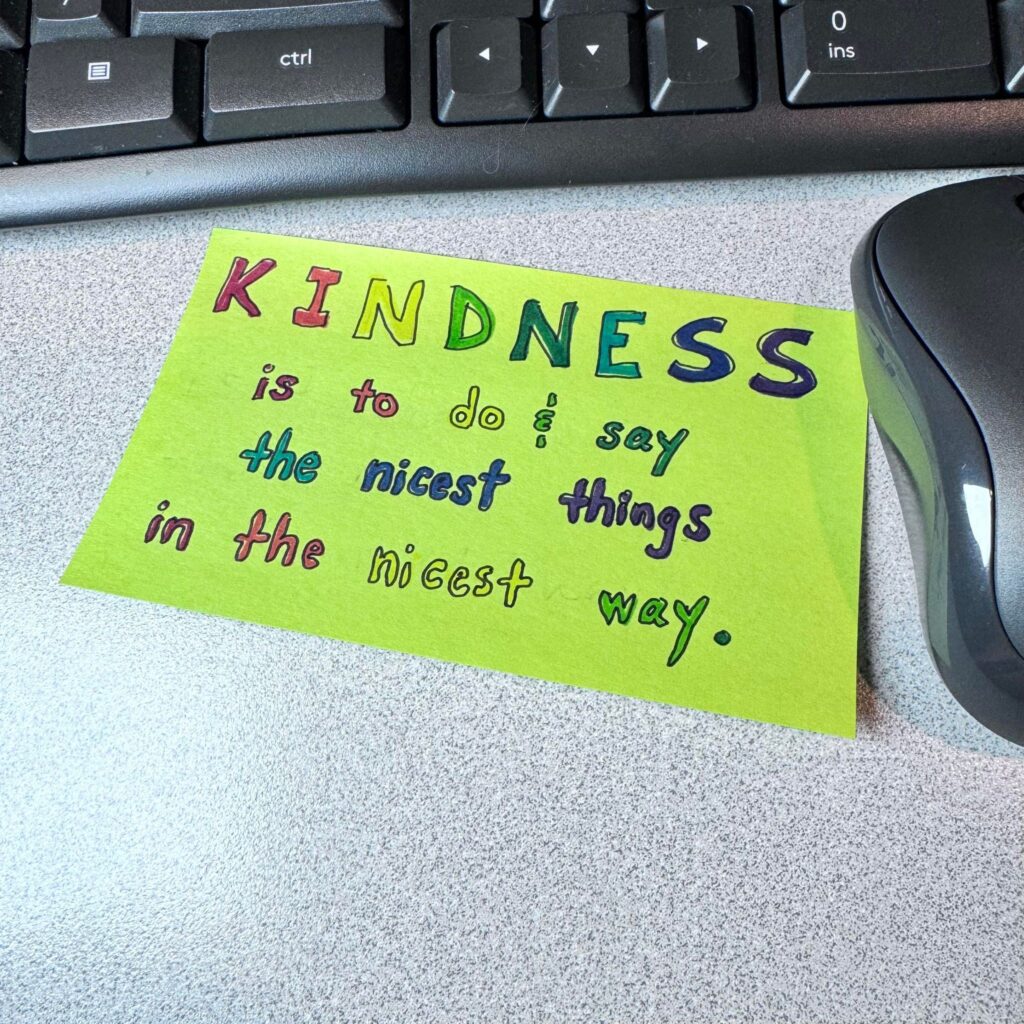 ctrl
0
ins
KINDNESS
is to do & say
the nicest things
in the nicest way.